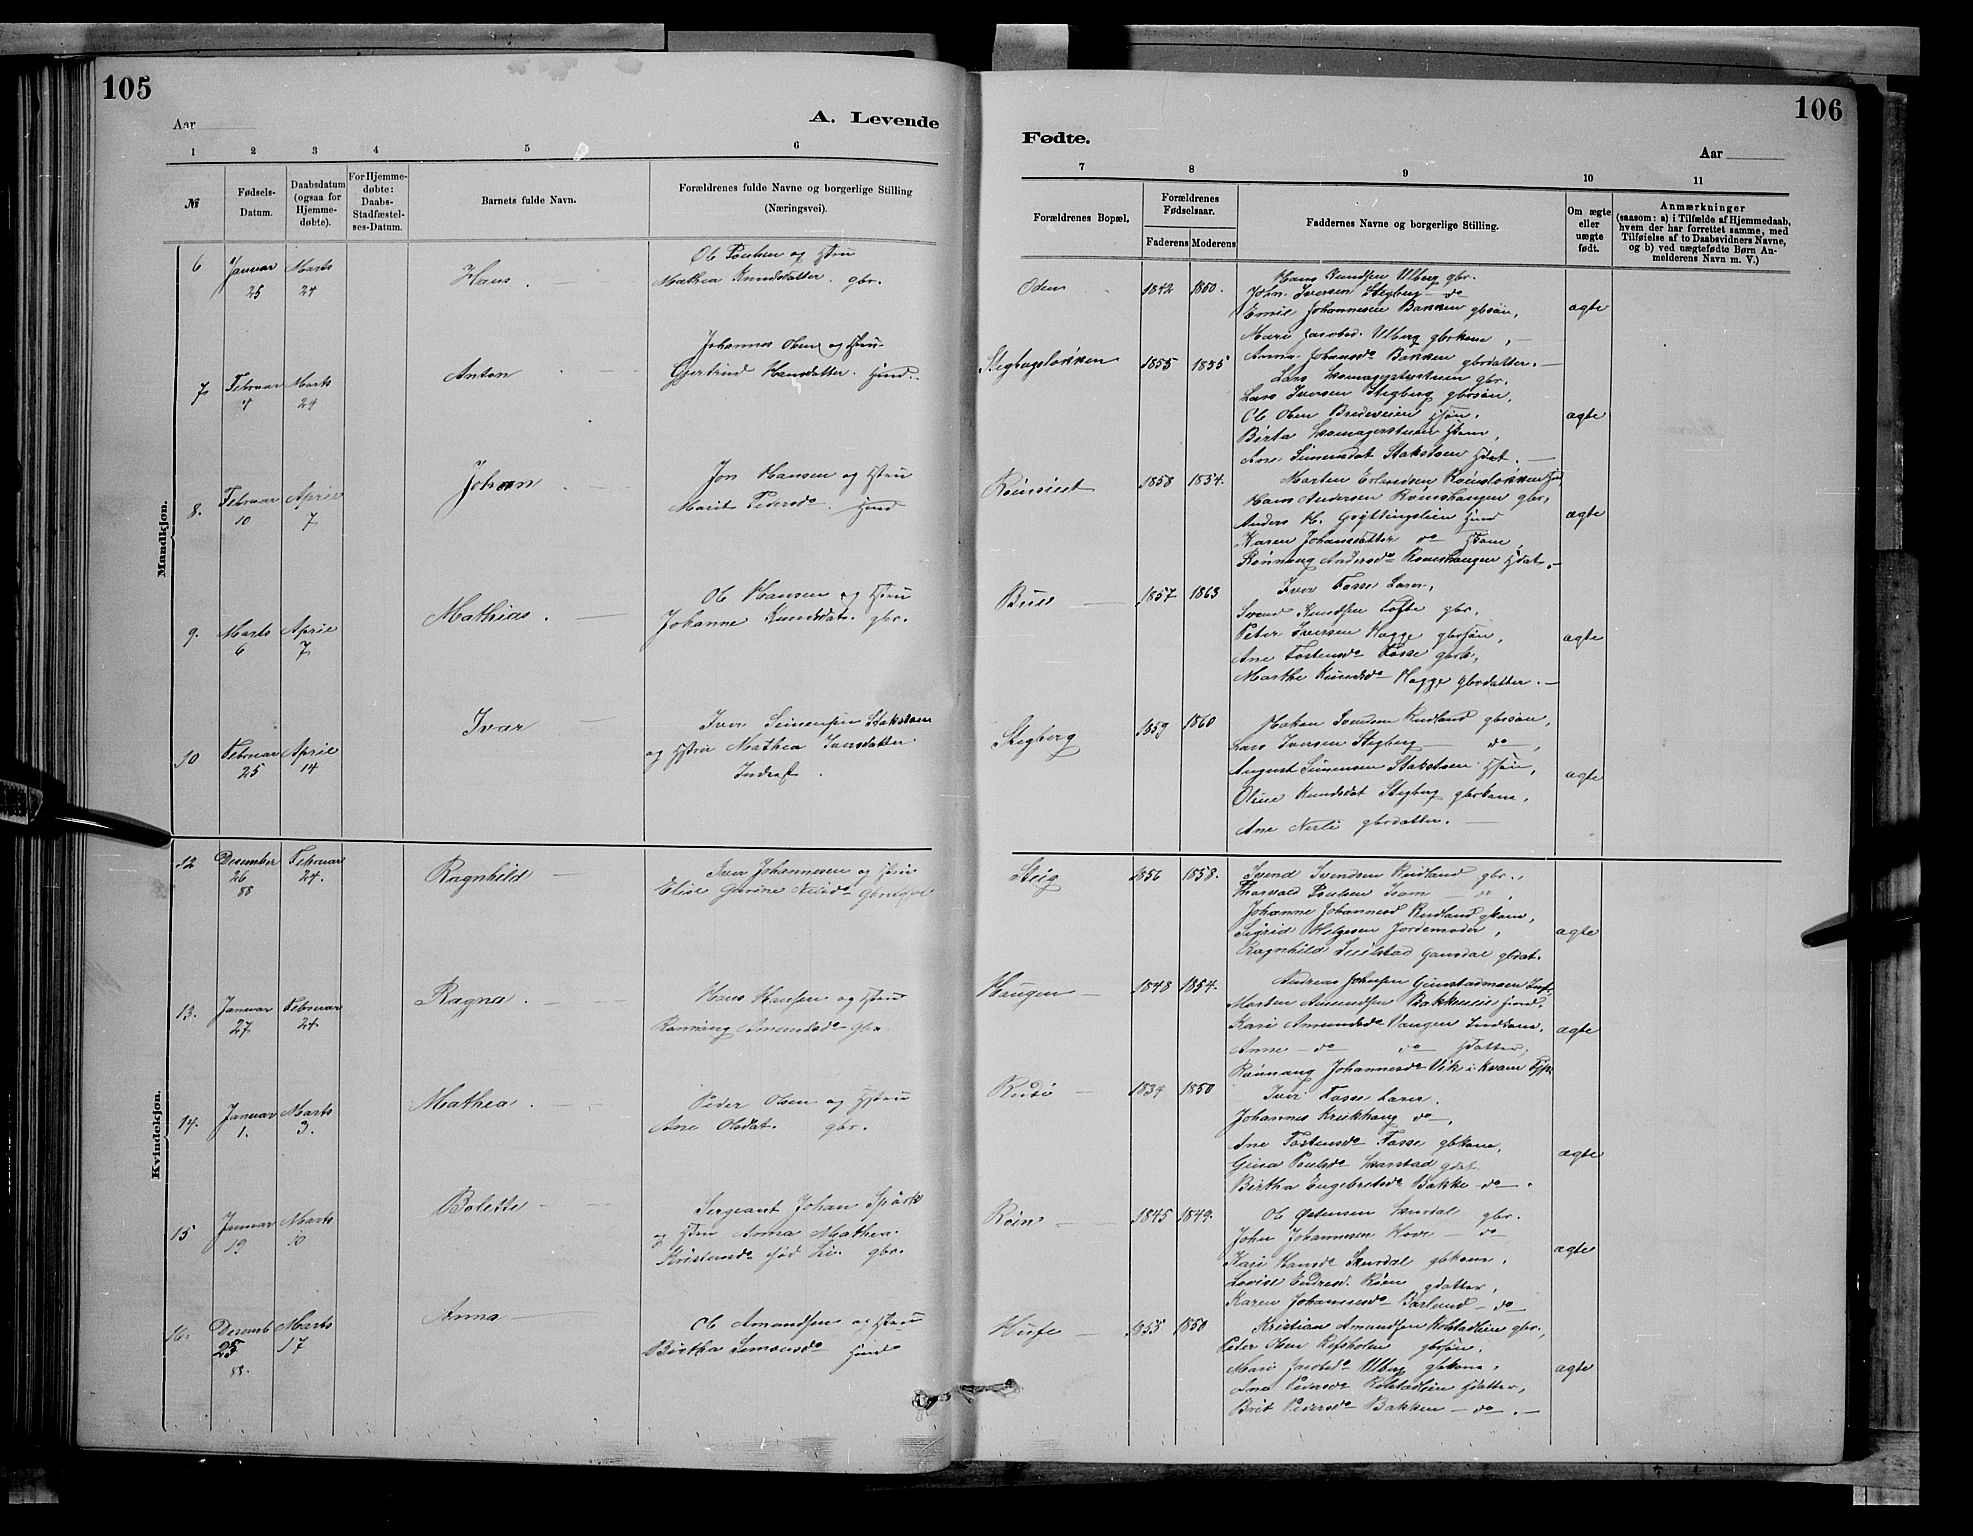 105
106
Aar
A. Levende
Fødte.
Aar
1 2 3 4 5 6
7 8 9 10 11
№
Fødsels-
Datum.
Daabsdatum
(ogsaa for
Hjemme-
døbte).
For Hjemme-
døbte:
Daabs-
Stadfæstel-
ses-Datum.
Barnets fulde Navn.
Forældrenes fulde Navne og borgerlige Stilling
(Næringsvei).
Forældrenes Bopæl.
Forældrenes
Fødselsaar.
Faderens Moderens
Faddernes Navne og borgerlige Stilling.
Om ægte
eller
uægte
født.
Anmærkninger
(saasom: a) i Tilfælde af Hjemmedaab,
hvem der har forrettet samme, med
Tilføielse af to Daabsvidners Navne,
og b) ved uægtefødte Børn An-
melderens Navn m. V.)
Mandkjøn.
6 Januar 25 Marts 24
Hans
Ol Poulsen og Hstru
Mathea Knudsdatter. gbr.
1842 1850.
Hans Knudsen Ulberg gbr.
John Iversen Stegberg do
Emil Johannesen Bakken gbsøn,
Mari Jacobsd. Ulberg gbrkone,
Anna Johansdo Bakken gbrdatter.
ægte
7 Februar 4 Marts 24
Anton
Johannes Olsen og Hstru
Gjertrud Hansdatter. Hmd.
Stegbergsløkken
1855 1855
Lars Iversen Stegberg gbrsøn,
Ol Olsen Bredeveien Hsøn.
Ane Simensdat Stakstoen Hdat.
ægte
8. Februar 10 April 7
Johan
Jon Hansen og Hstru
Marit Pedersdo Hmd
1858 1854.
Morten Erlandsen Rønsløkken
Hans Andersen Rønshaugen gbr,
Anders H. Gryttingslien Hmd
Karen Johansdatter do Hkone
Rønnaug Andersdo Rønshaugen Hdat.
ægte
9. Marts 6 April 7
Mathias.
Ol Hansen og Hstru
Johanne Knudsdat. gbr.
1857 1863
Iver Fosse Lærer,
Svend Knudsen Tofte gbr.
Peter Iversen Hagge gbrsøn,
Ane Tostensdo Fosse gbrk,
Marthe Knudsdo Hagge gbrdatter.
ægte
10 Februar 25 April 14
Ivar
Iver Simensen Stakstoen
og Hstru Mathea Iversdatter
Inderst.
Stegberg
1859 1860
Hakon Svendsen Rudland gbrsøn,
Lars Iversen Stegberg do,
August Simensen Stakstoen Hsøn,
Oline Knudsdat Stegberg gbrkone,
Ane Nerli gbrdatter.
ægte
Kvindekjøn.
12 Desember 26 88 Februar 24.
Ragnhild
Iver Johannesen og Hstru
Elise Gurine
Steig
1856 1858.
Svend Svendsen Rudland gbr.,
Thorvald Poulsen do,
Johanne Johannesd Rudland gkone,
Sigrid Helgesen Jordemoder,
Ragnhild
ægte
13. Januar 27 Februar 24
Ragna.
Hans Hansen og Hstru
Rønnaug Amundsdo gbr
Haugen
1848 1854.
Morten Amundsen Bakkeneie Hmd,
Kari Amundsdo Haugen Indkone,
Anne do do Hdatter,
Rønnaug Johannesdo Vik i Kvam
ægte
14. Januar 1. Marts 3.
Mathea.
Peder Olsen og Hstru
Ane Olsdat. gbr.
1834 1850
Iver Fosse Lærer.
Johannes Krukhaug do,
Ane Tostensdo Fosse gbkone,
Gina Poulsdo Harstad gdat
Birtha Engebretsdo Bakke do.
ægte
15 Januar 19 Marts 10
Bolette
Sergeant Johan Spørk
og Hstru Anna Mathea
Kristensdo fød Lie. gbr.
Røin
1845 1849.
Ol Østensen Skurdal gbr.
John Johannesen Hove do
Kari Hansdo Skurdal gbkone,
Lovise Endresd. Røen gdatter,
Karen Johannesdo Barlund do
ægte
16. Desemb 25 88. Marts 17
Anna
Ol Amundsen og Hstru
Birtha Simonsdo Hmd
1855 1850
Kristian Amundsen Rolstadlien gbr,
Peter Olsen Refsholen gbsøn.
Mari Jacobsdo Ulberg gbkone,
Ane Pedersdo Rolstadlien Hdatter,
Brit Pedersdo Bakken do.
ægte